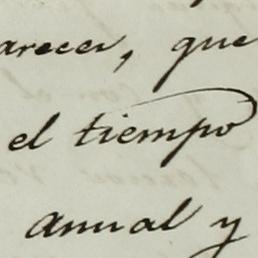 arecer, que
el tiempo
anual y